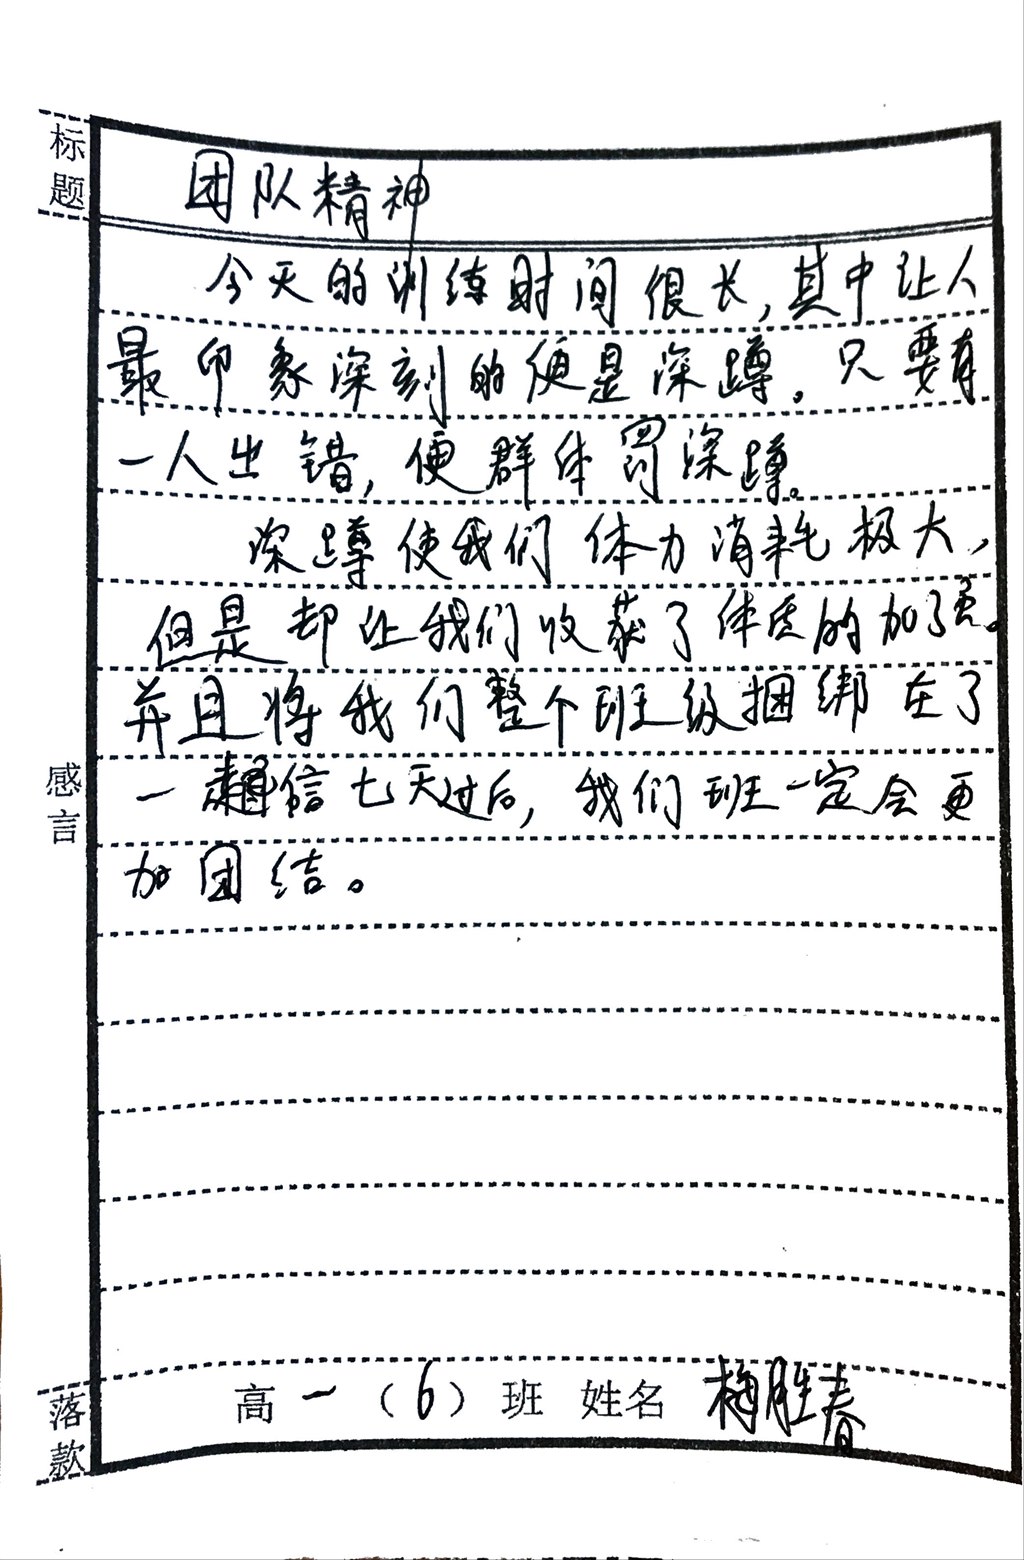 标题
团队精神
今天的训练时间很长,其中让人
最印象深刻的便是深蹲。只要有
一人出错,便群体罚深蹲。
深蹲使我们体力消耗极大,
但是却让我们收获了体质的加了
并且将我们整个班级捆绑在了
一 信七天过后,我们班一定会更
加团结。
感言
落款
高一(6)班 姓名 梅胜春